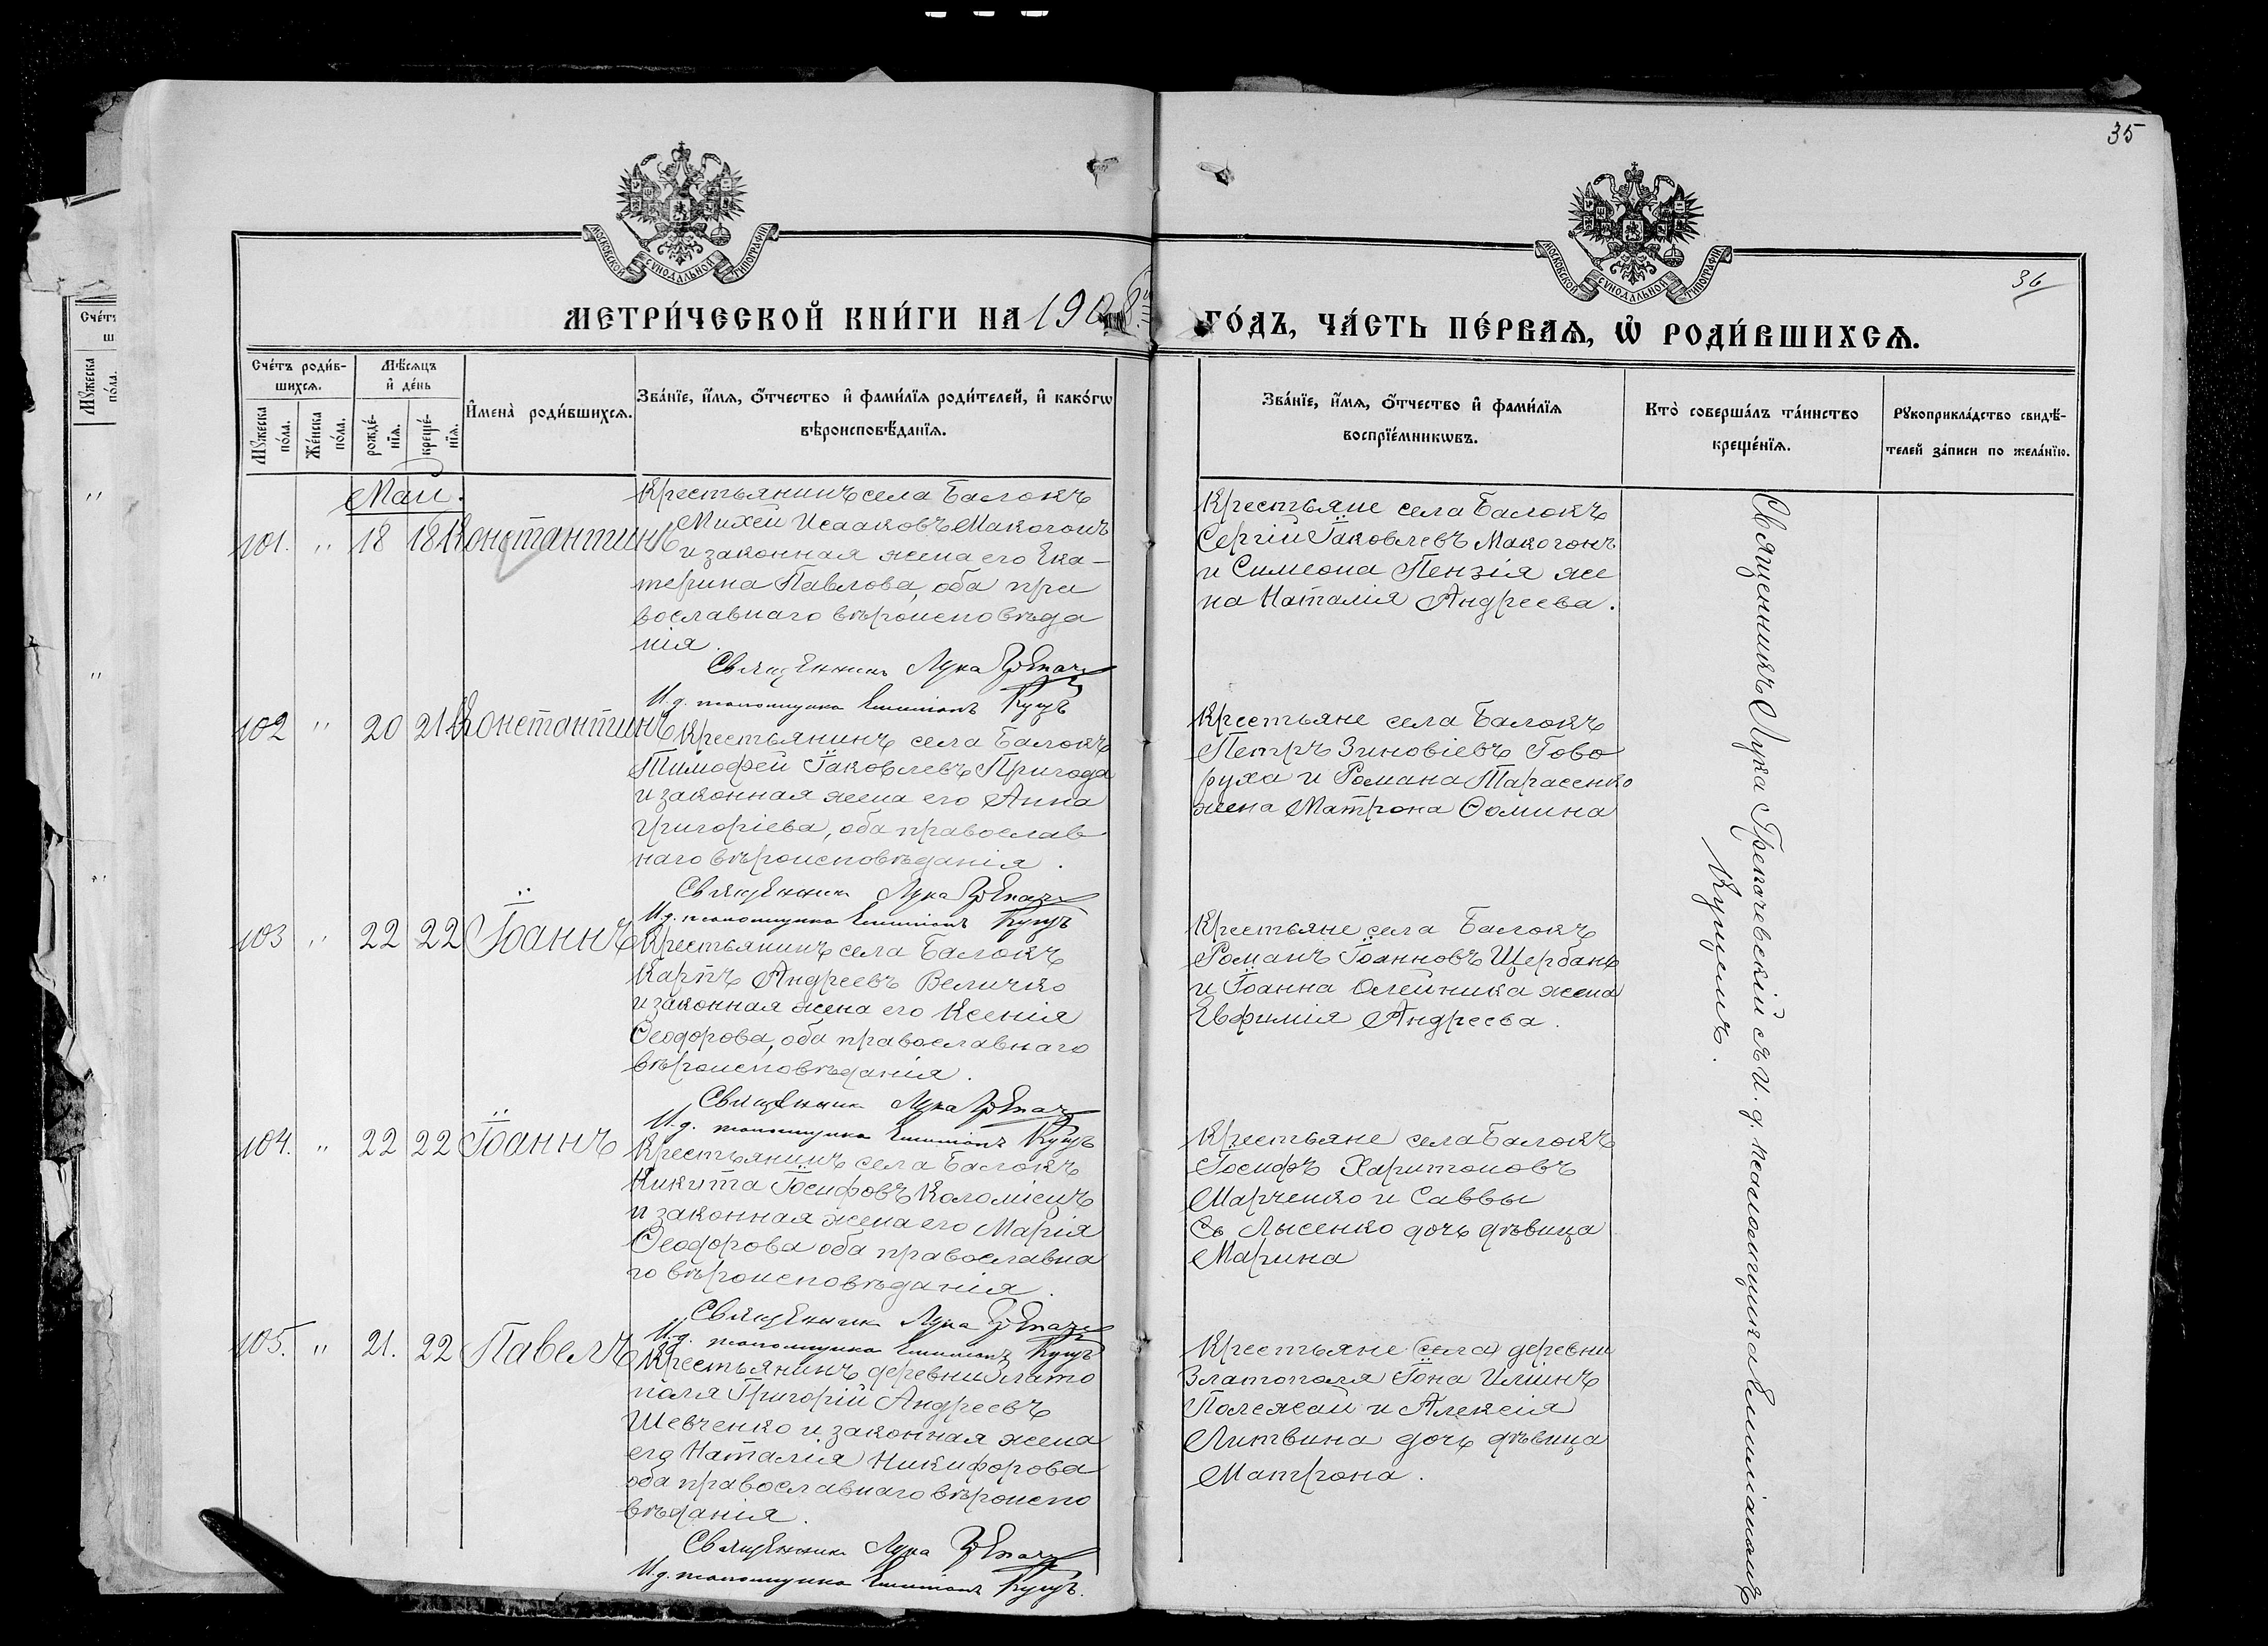 35
36
МОСКОВСКОЙ СУНОДАЛЬНОЙ ТИПОГРАФІИ
МОСКОВСКОЙ СУНОДАЛЬНОЙ ТИПОГРАФІИ
МЕТРИ́ЧЕСКОЙ КНИ́ГИ НА 1908
ГО́ДЪ, ЧА́СТЬ ПЕ́РВАѦ, Ѽ РОДИ́ВШИХСѦ.
Сче́тъ роди́в-
шихсѧ.
Мѣ́сѧцъ
и҆ де́нь
Мꙋжеска по́ла.
Же́нска по́ла.
рожде́-
нїѧ.
креще́-
нїѧ.
И҆мена̀ роди́вшихсѧ.
Зва́нїе, и҆́мѧ, ѻ҆́тчество и҆ фами́лїѧ роди́телей, и҆ како́гѡ
вѣроисповѣ́данїѧ.
Зва́нїе, и҆́мѧ, ѻ҆́тчество и҆ фами́лїѧ
воспрїе́мникѡвъ.
Кто̀ соверша́лъ та́инство
креще́нїѧ.
Рꙋкоприкла́дство свидѣ́-
телей за́писи по жела́нїю.
Май.
101. " 18 18 Константинъ
Крестьянинъ села Балокъ
Михей Исааковъ Макогонъ
и законная жена его Ека-
терина Павлова, оба пра
вославнаго вѣроисповѣда
нія.
Священникъ Лука
И.д. псаломщика Емиліанъ Куцъ
Крестьяне села Балокъ
Сергій Іаковлевъ Макогонъ
и Симеона Пензія же
на Наталія Андреева.
102 " 20 21 Константинъ
Крестьянинъ села Балокъ
Тимофей Іаковлевъ Пригода
и законная жена его Анна
Григоріева, оба православ
наго вѣроисповѣданія.
Священникъ Лука
И.д. псаломщика Емиліанъ Куцъ
Крестьяне села Балокъ
Петръ Зиновіевъ Гово
руха и Романа Тарасенко
жена Матрона Ѳомина
103 " 22 22 Іоаннъ
Крестьянинъ села Балокъ
Карпъ Андреевъ Величко
и законная жена его Ксенія
Ѳеодорова, оба православнаго
вѣроисповѣданія.
Священникъ Лука
И.д. псаломщика Емиліанъ Куцъ
Крестьяне села Балокъ
Романъ Іоанновъ Щербань
и Іоанна Олейника жена
Евфимія Андреева.
104. " 22 22 Іоаннъ
Крестьянинъ села Балокъ
Никита Іосифовъ Коломіецъ
и законная жена его Марія
Ѳеодорова оба православна
го вѣроисповѣданія.
Священникъ Лука
И.д. псаломщика Емиліанъ Куцъ
Крестьяне села Балокъ
Іосифъ Харитоновъ
Марченко и Саввы
Лысенко дочь дѣвица
Марина
105. " 21. 22 Павелъ
Крестьянинъ деревни Злато
поля Григорій Андреевъ
Шевченко и законная жена
его Наталія Никифорова
оба православнаго вѣроиспо
вѣданія.
Священникъ Лука
И.д. псаломщика Емиліанъ Куцъ.
Крестьяне (села) деревни
Златополя Іона Иліинъ
Полежай и Алексія
Литвина дочь дѣвица
Матрона.
Священникъ Лука Грепачевскій съ и. д. псаломщика Емиліаномъ
Куцемъ.
Сче́тъ
ш
Мꙋжеска
по́ла.